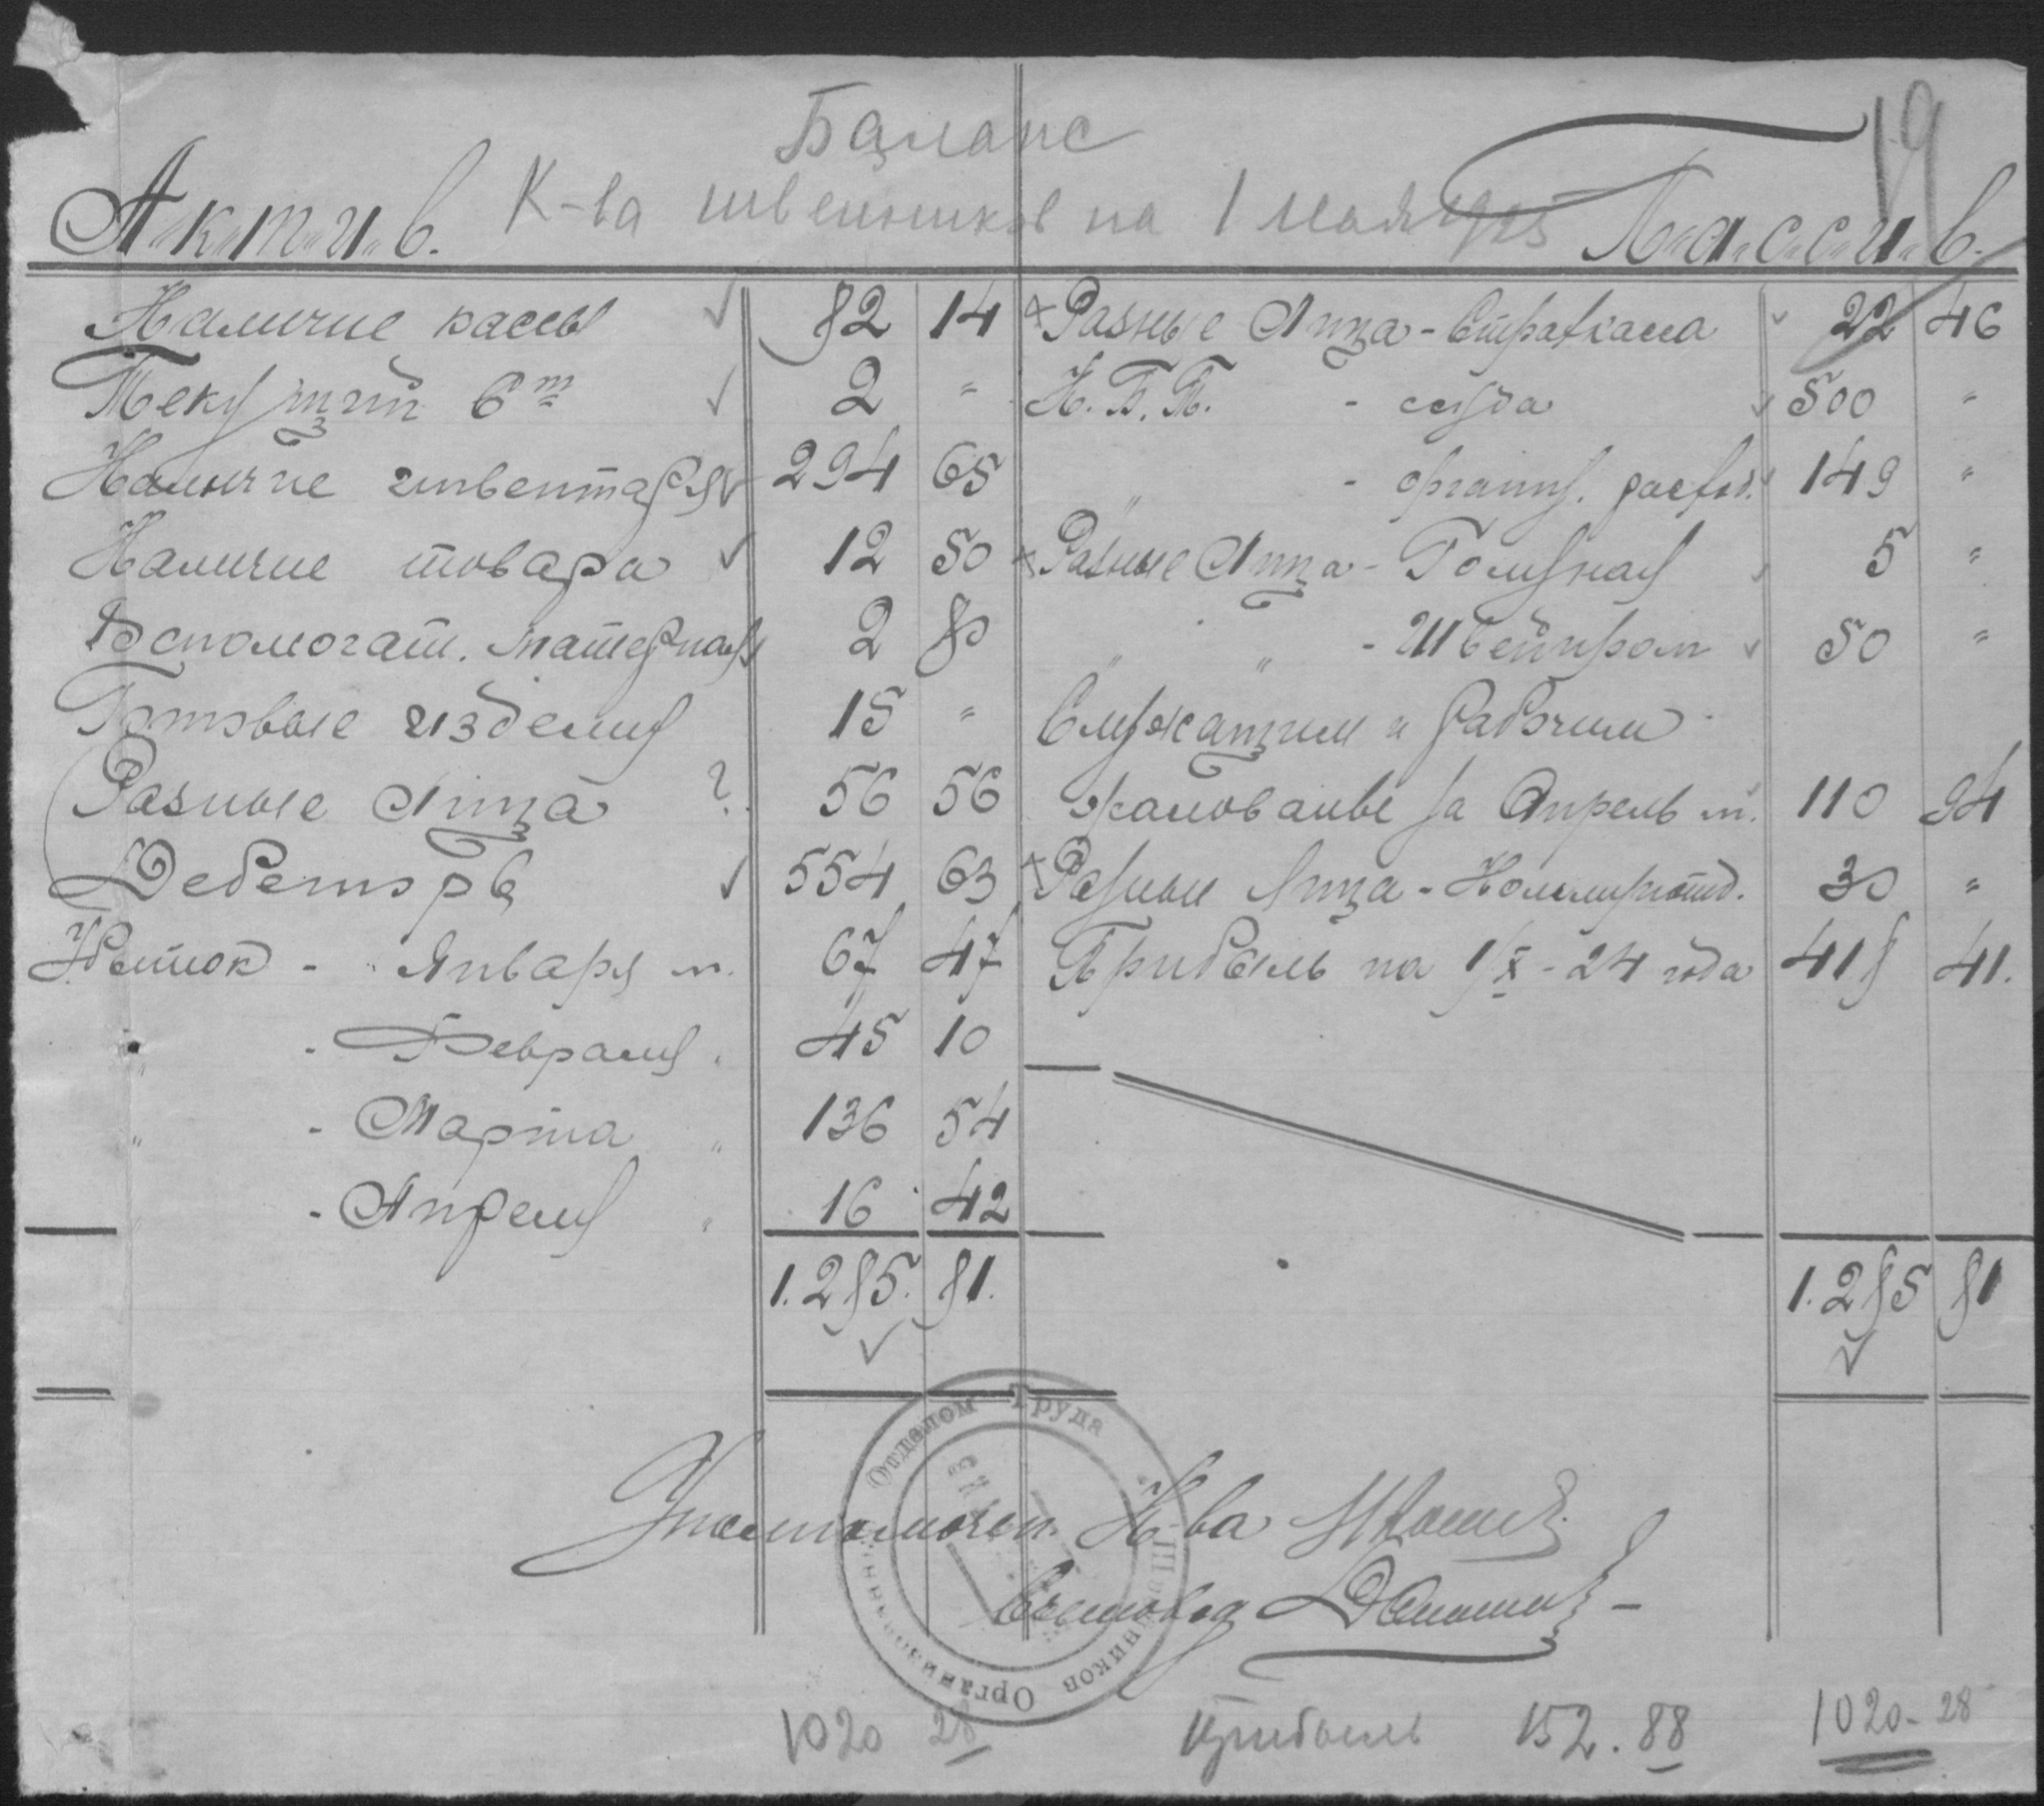 19
Баланс
К-ва швейников на 1 мая 1925
А.к.т.и.в. П.а.с.с.и.в.
Наличие кассы 82 14
Текущий с/т 2 "
Наличие инвентаря 294 65
Наличие товара 12 50
Вспомогат. материал 2 80
Готовые изделия 15 "
Разные лица ? 56 56
Дебеторв 554 63
Убыток - Январь м. 67 47
" - Февраля " 45 10
" - Марта " 136 54
" - Апреля " 16 42
1.285. 81.
Разные Лица - Страхкасса 22 46
К.Б.П. - ссуда 500 "
" - организ. расход. 149 "
Разные Лица - 5 "
" " - Швейпром 50 "
Служащим и рабочим
жалованье за Апрель м. 110 94
Разные Лица - 30 "
Прибыль на 1/X - 24 года 418 41.
1.285 81
Отделом Труда
Швейников
Организованный
Уполномочен. К-ва
Счетовод
1020 28 прибыль 152.88 1020-28